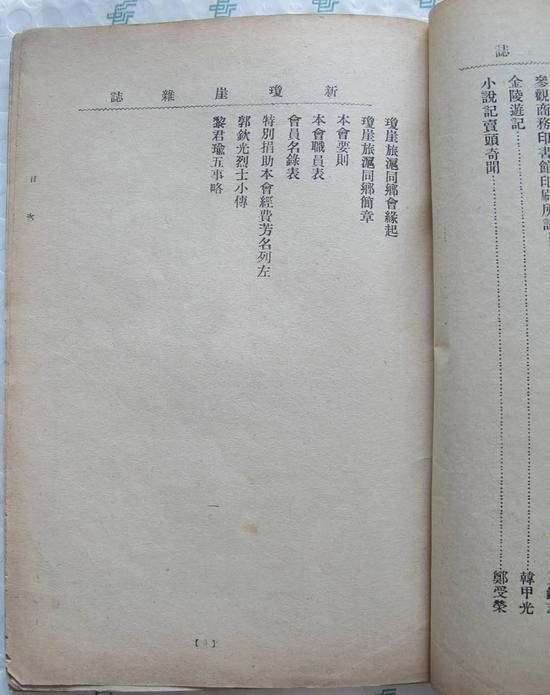 誌
金陵遊記 韓甲光
小說記賣頭奇聞 鄭受榮
新瓊崖雜誌
瓊崖旅滬同鄉會緣起
瓊崖旅滬同鄉簡章
本會要則
本會職員表
會員名錄表
特別捐助本會經費芳名列左
郭欽光烈士小傳
黎君瑜五事略
目次